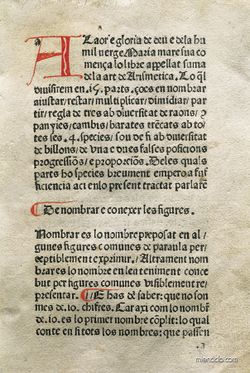 A Laor e gloria de deu e dela hu
mil verge Maria mare sua co
mença lo libre appellat suma
dela art de Arismetica. Lo q̃l
diuisirem en .15. parts, ço es en nombrar
aiustar/ restar/ multiplicar/ dimidiar/ par
tir/ regla de tres ab diuersitat de raons/
panyies/ cambis/ barates
les .4. species/ son de fi ab diuersitat
de billons/ de vna e dues falses posicions
progressiõs/ e proporciõs. Deles quals
parts ho species breument empero a suf
ficiencia aci en lo present tractat parlare
De nombrar e conexer les figures.
Nombrar es lo nombre preposat en al/
gunes figures comunes de paraula per
septiblement exprimir/ Altrament nom
brares lo nombre en lea teniment conce
but per figures comunes visiblement re
presentar. E has de saber: que no son
mes de .10. chifres. Car axi com lo nombre
de .10. es lo primer nombre cõplit: lo qual
conte en si tots los nombres: que passen
miendido.com